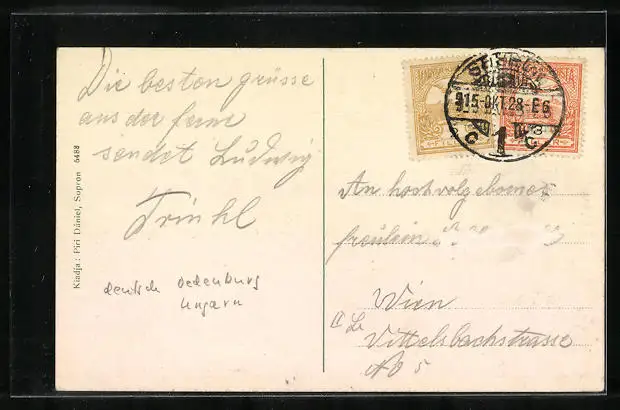 Die besten grüsse
aus der ferne
sendet Ludwig
Trinkl
deutsch Oedenburg
Ungarn
Kiadja: Piri Dániel, Sopron 6488
915 OKT. 28-E 6
1
C C
An hochvolgeborne
freülein
Wien
II
Vittelsbachstrasse
No 5